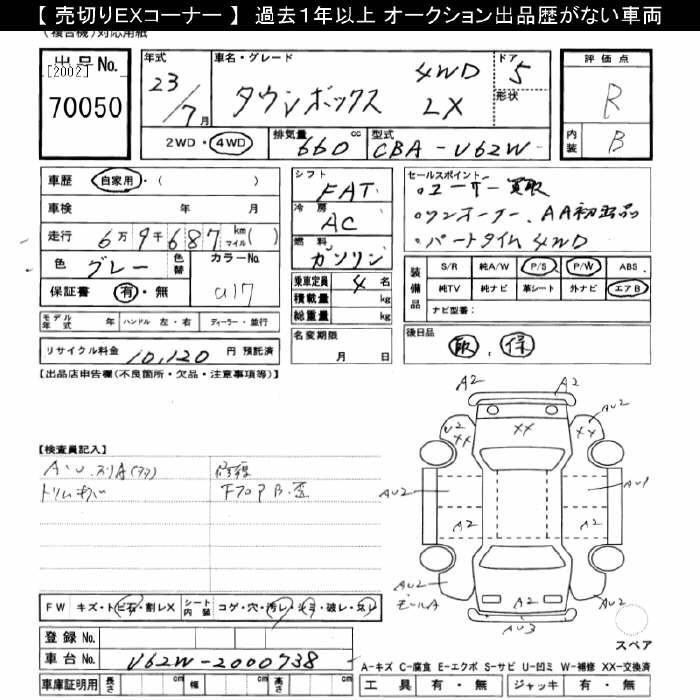 【 売切りEXコーナー 】 過去1年以上 オークション出品歴がない車両
(複合機)対応用紙
出品No.
[2002]
70050
年式
23/7月
車名・グレード
4WD
タウンボックス LX
ドア
5
形状
評価点
R
内装
B
2WD・4WD
排気量
660 cc
型式
CBA-U62W
車歴 自家用・( )
車検 年 月
走行 6万9千687 km マイル( )
色 グレー 色替 カラーNo. U17
保証書 有・無
モデル年式 年 ハンドル 左・右 ディーラー・並行
リサイクル料金 10,120 円 預託済
シフト
FAT
冷房
AC
燃料
ガソリン
乗車定員 4 名
積載量 kg
総重量 kg
名変期限
月 日
セールスポイント
。ユーザー買取
。ワンオーナー、AA初出品
。パートタイム4WD
装備品
S/R 純A/W P/S P/W ABS
純TV 純ナビ 革シート 外ナビ エアB
ナビ型番:
後日品
取 . 保
【出品店申告欄(不良箇所・欠品・注意事項等)】
【検査員記入】
A・U
修復
FW キズ・トビ石・割レX シート内装 コゲ・穴・汚レ・シミ・破レ・スレ
登録No.
車台No. U62W-2000738
車庫証明用 長さ cm 幅 cm 高さ cm
A2
A2
AU2
U2
XX
XX
XX
AU2
AU1
A2
A2
AU2
モールA
A2
AU2
AU3
スペア
A-キズ C-腐食 E-エクボ S-サビ U-凹ミ W-補修 XX-交換済
工具 有・無 ジャッキ 有・無